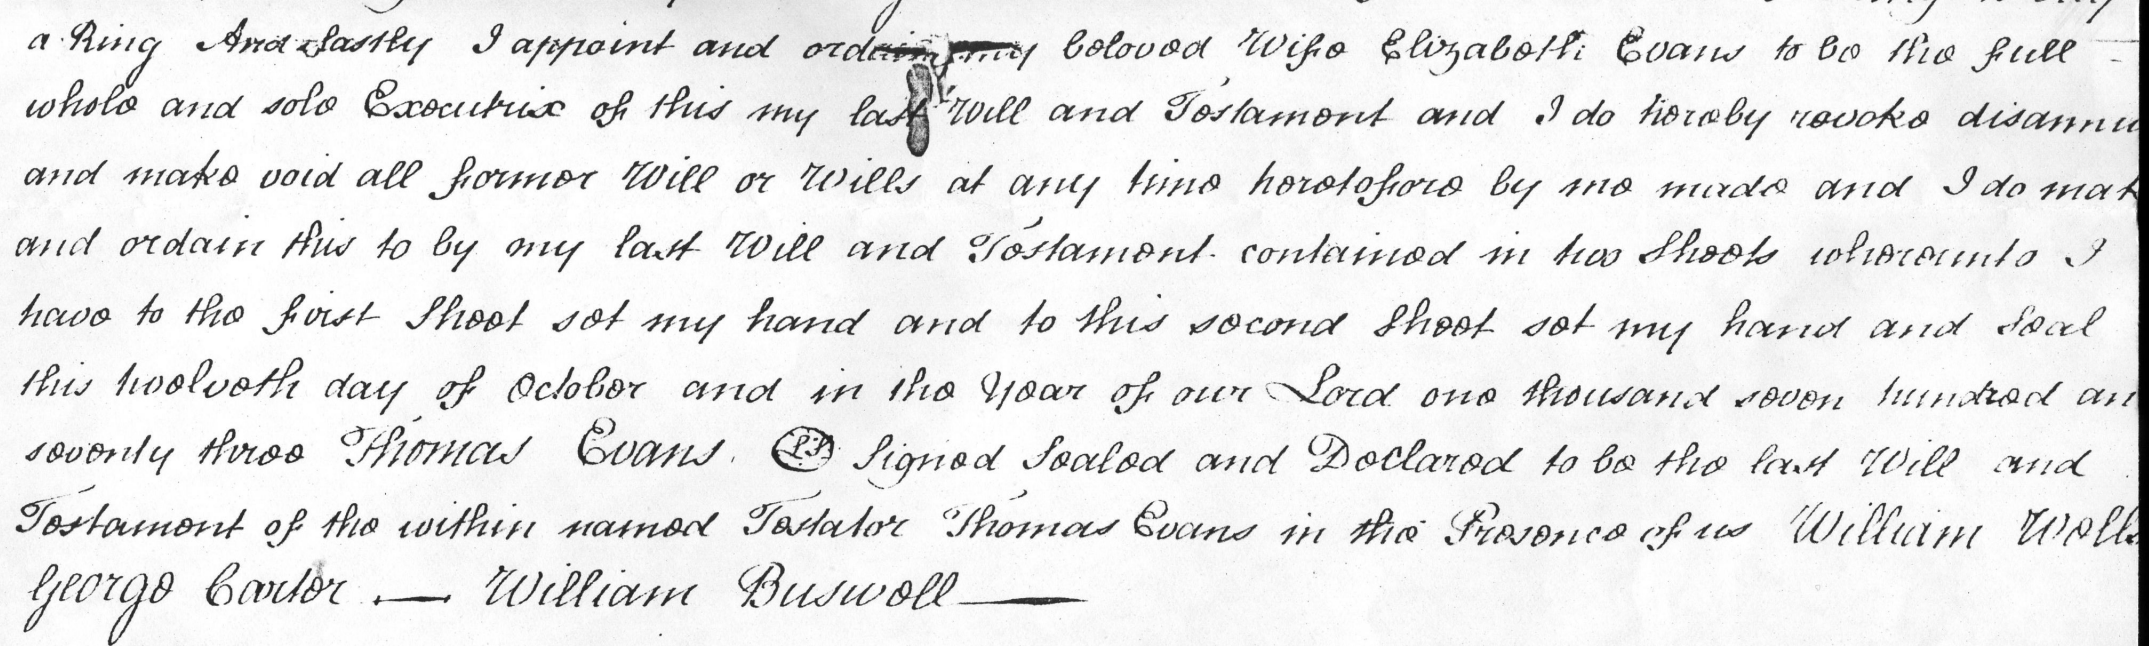 a Ring And lastly I appoint and ordain my beloved Wife Elizabeth Evans to be the full
whole and sole Executrix of this my last Will and Testament and I do hereby revoke disannu
and make void all former Will or Wills at any time heretofore by me made and I do mak
and ordain this to by my last Will and Testament contained in two Sheets whereunto I
have to the first Sheet set my hand and to this second Sheet set my hand and Seal
this twelveth day of October and in the Year of our Lord one thousand seven hundred an
seventy three Thomas Evans. LS Signed Sealed and Declared to be the last Will and
Testament of the within named Testator Thomas Evans in the Presence of us William Wells
George Carter — William Buswell —